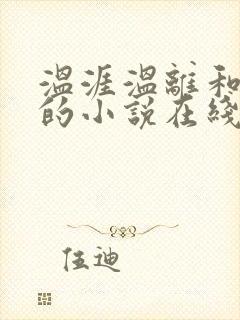 温涯温離和
的小说在綫
伍迪